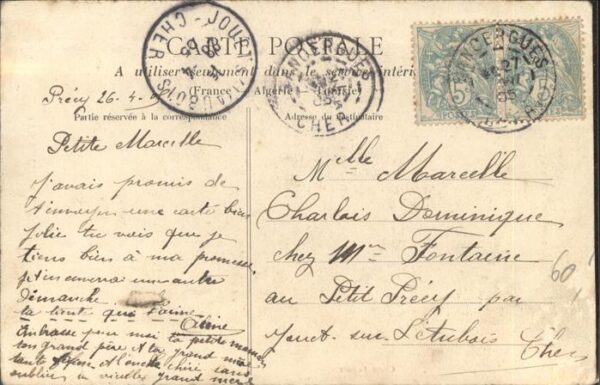 CARTE POSTALE
A utiliser seulement dans le service intéri
(France - Algérie - Tunisie)
Partie réservée à la correspondance
Adresse du Destinataire
JOUET
CHER
SANCERGUES
CHER
SANCERGUES
27
05
5c
POSTES
Précy 26-4-
Petite Marcelle
J'avais promis de
t'envoyer une carte bien
jolie tu vois que je
tiens bien à ma promesse
je t'en enverrai une autre
Dimanche
ta tient qui t'aime
Céline
Embrasse pour moi ta petite maman
ton grand père et ta grand mère
tante et l'oncle sans
oublier grand mère
Mlle Marcelle
Charlois Dominique
chez Mme Fontaine
au Petit Précy par
Jouet-sur-L'Aubois Cher
60